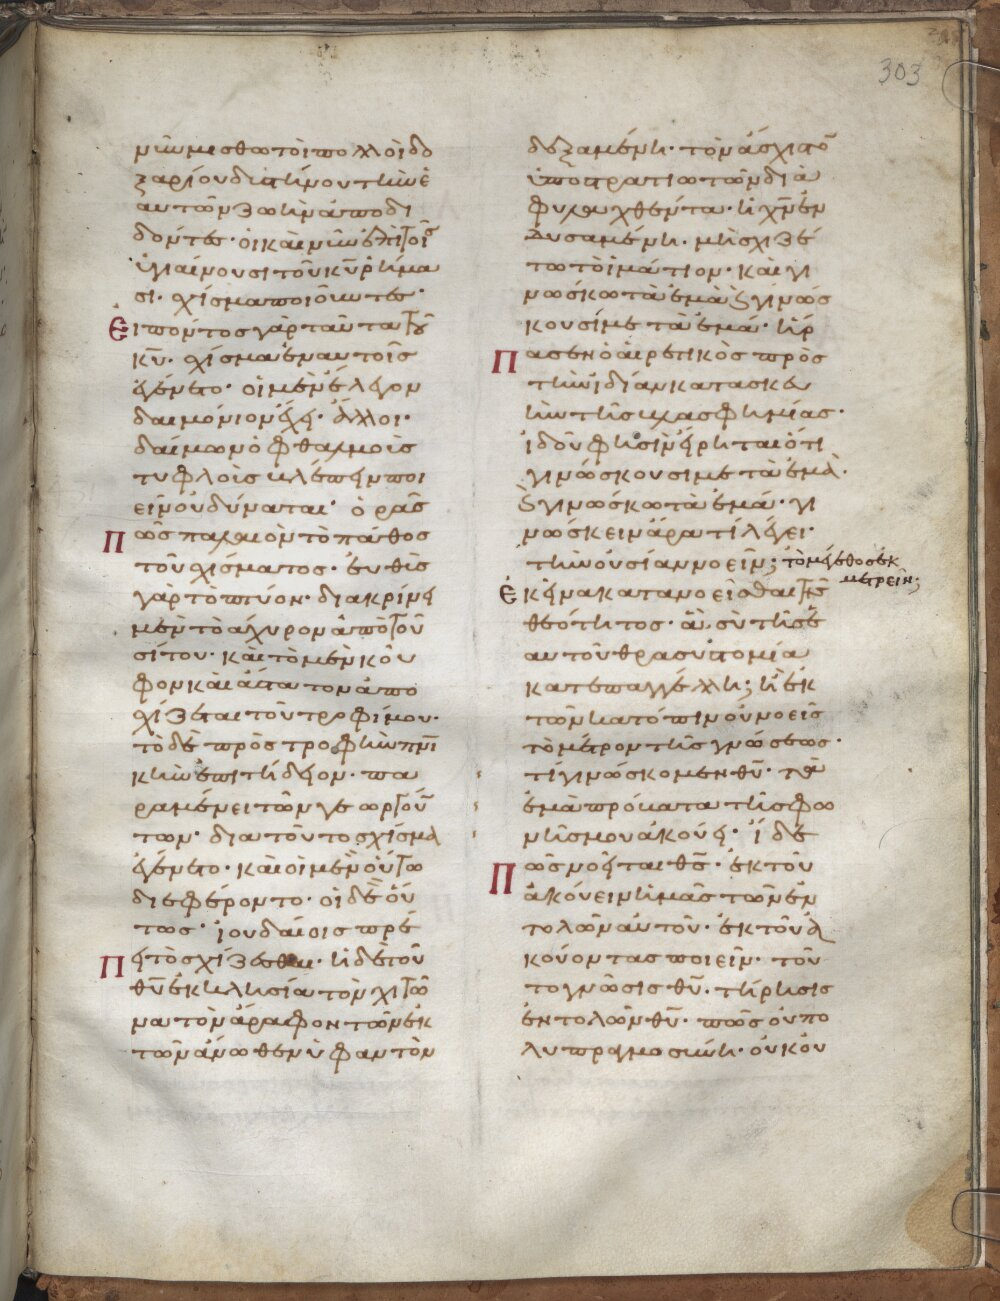 303
μιώμεσθω τοι πολλοὶ δο
ξαρίου διάτινου τὴν ἑ
αυτῶν ζωὴν ἀποδι
δόντες· οἱ καὶ μιῶ ἐπὶ τοῖς
ὑγιαίνουσι τοῦ κυ ρήμα
σι· σχίσμα ποιοῦντες·
Εἰπόντος γὰρ ταῦτα τοῦ
κυ· σχίσμα ἐν αυτοῖς
ἐγένετο· οἱ μὲν ἔλεγον
δαιμόνιον ἔχει· ἄλλοι·
δαίμων ὀφθαλμοὺς
τυφλοῖς βλέπειν ποι
εῖν οὐ δύναται· ὁρᾶς
Πῶς παλαιὸν τὸ πάθος
τοῦ σχίσματος· εὐθὺς
γὰρ τὸ πτύον· διακρίνει
μὲν τὸ ἄχυρον ἀπὸ τοῦ
σίτου· καὶ τὸ μὲν κοῦ
φον καὶ ἄτατον ἀπο
σχίζεται τοῦ τροφίμου·
τὸ δὲ πρὸς τροφὴν πνι
κὴν ἐπιτήδειον· πα
ραμένει τῶν γεωργούν
των· διὰ τοῦτο σχίσμα
ἐγένετο· καὶ οἱ μὲν οὕτω
διεφέροντο· οἱ δὲ οὕ
τως· ἰουδαίοις πρέ
Πει τὸ σχίζεσθαι· ἡ δὲ τοῦ
θυ ἐκκλησία τὸν χιτῶ
να τὸν ἄραφον τῶν ἐκ
τῶν ἄνωθεν ὑφαντὸν
δεξαμένη· τὸν ἄσχιστον
ὑπὸ στρατιωτῶν δια
φυλαχθέντα· ἡ χν ἐν
δυσαμένη· μὴ σχιζέ
τω τὸ ἱμάτιον· καὶ γι
νώσκω τὰ ἐμὰ καὶ γινώς
κουσί με τὰ ἐμά· ἥρ
Πασεν ὁ αἱρετικὸς πρὸς
τὴν ἰδίαν κατασκευ
ὴν τῆς βλασφημίας·
ἰδοὺ φησὶν εἴρηται ὅτι
γινώσκουσί με τὰ ἐμά·
καὶ γινώσκω τὰ ἐμά· γι
νώσκειν ἄρα τί λέγει·
τὴν οὐσίαν νοεῖν; τὸ μέγεθος ἐκ
μετρεῖν;
Ἐκεῖνα κατανοεῖσθαι τῆς
θεότητος· ἃ σὺ τῆς ἑ
αυτοῦ θρασυστομία
κατεπαγγέλλῃ; ἢ ἐκ
τῶν κατόπιν οὐ νοεῖς
τὸ μέτρον τῆς γνώσεως·
τί γινώσκομεν θυ· τὰ
ἐμὰ πρόβατα τῆς φω
νῆς μου ἀκούει· ἴδε
Πῶς νοεῖται θς· ἐκ τοῦ
ἀκούειν ἡμᾶς τῶν ἐν
τολῶν αὐτοῦ· ἐκ τοῦ ἀ
κούοντας ποιεῖν· τοῦ
το γνῶσις θυ· τήρησις
ἐντολῶν θυ· πῶς οὐ πο
λυπραγμοσύνη· οὐκ οὐ